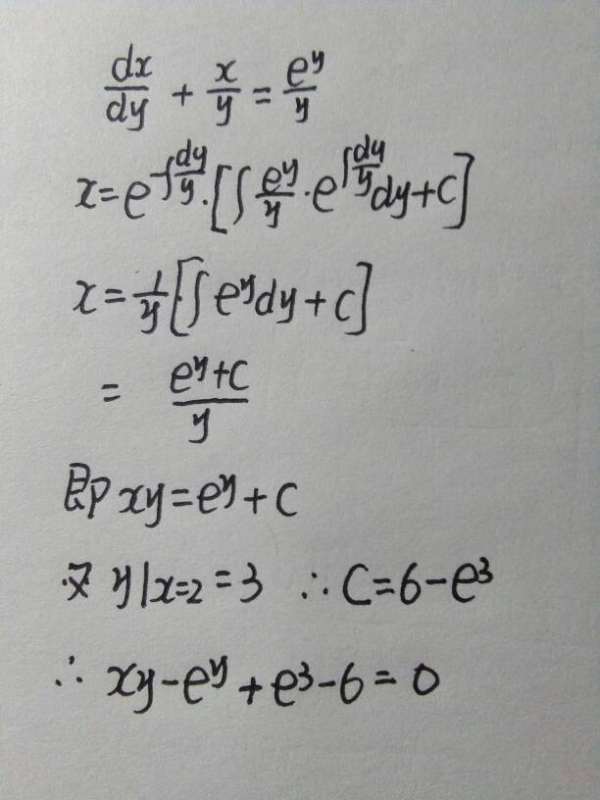 dx/dy + x/y = e^y/y
x = e^{-∫dy/y}·[∫ e^y/y · e^{∫dy/y} dy + C]
x = 1/y [∫ e^y dy + C]
= (e^y + C)/y
即 xy = e^y + C
又 y|x=2 = 3 ∴ C = 6 - e^3
∴ xy - e^y + e^3 - 6 = 0